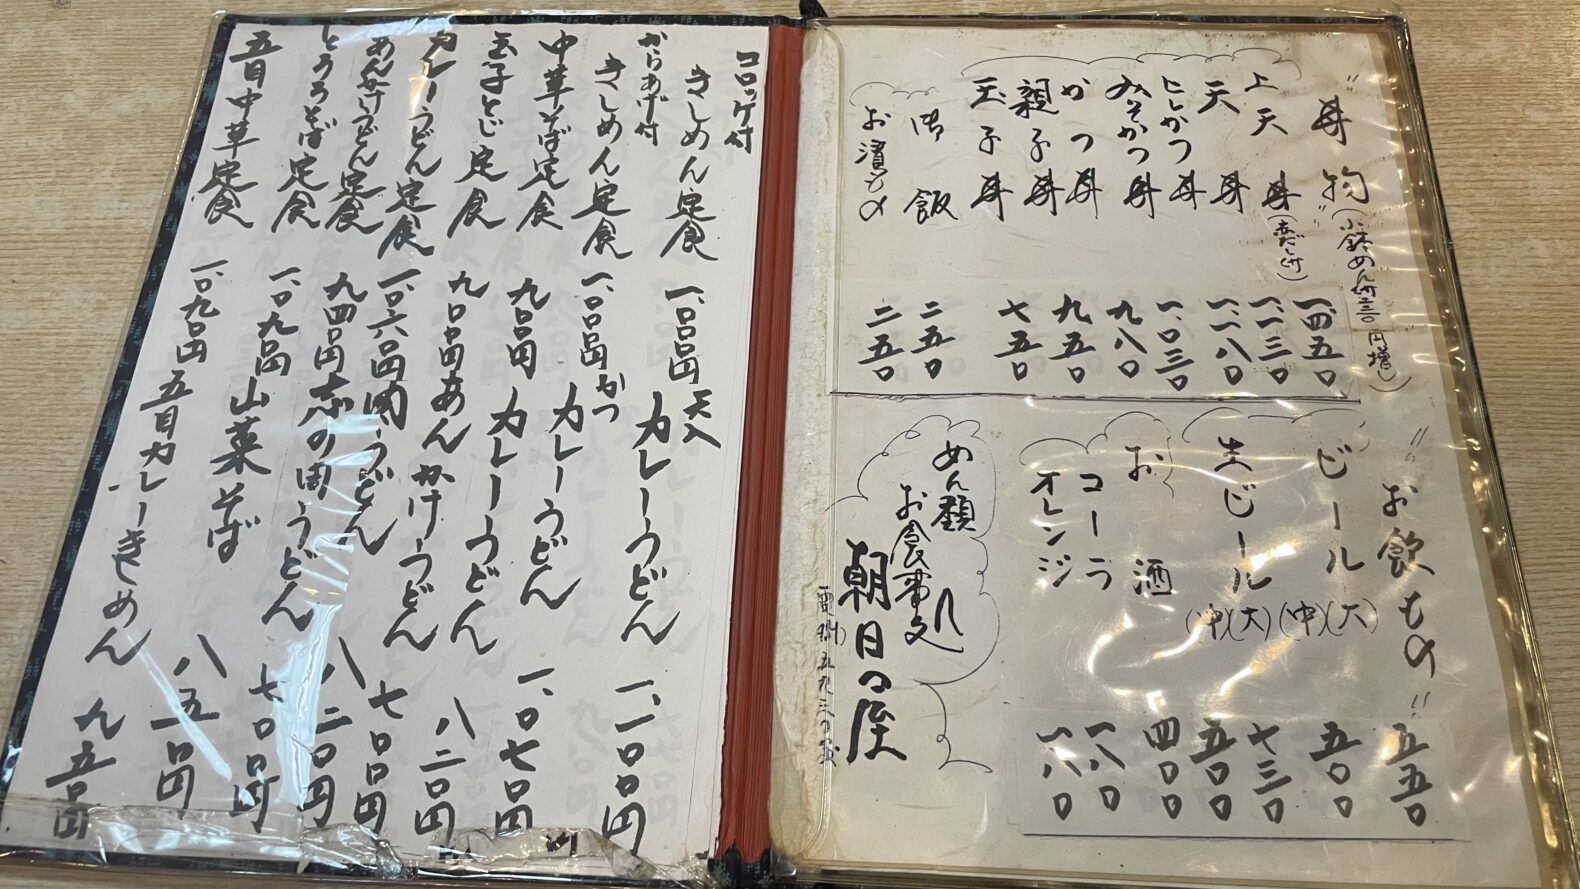 "丼物"(小鉢めん付三三〇円増し)
上天丼(赤だし付)
天丼
ヒレかつ丼
みそかつ丼
かつ丼
親子丼
玉子丼
御飯
お漬もの
一、四五〇
一、一三〇
一、一八〇
一、〇三〇
九八〇
九五〇
七五〇
二五〇
二五〇
"お飲もの"
ビール(大)
(中)
生ビール(大)
(中)
お酒
コーラ
オレンジ
五五〇
五〇〇
七三〇
五〇〇
四〇〇
一八〇
一八〇
めん類
お食事処
朝日屋
コロッケ付
きしめん定食 一、〇〇〇円
からあげ付
きしめん定食 一、〇〇〇円
中華そば定食 九〇〇円
玉子とじ定食 九〇〇円
カレーうどん定食 一、〇六〇円
あんかけうどん定食 九四〇円
とろろそば定食 一、〇九〇円
五目中華定食 一、〇九〇円
天入カレーうどん 一、一〇〇円
かつカレーうどん 一、〇七〇円
カレーうどん 八二〇円
あんかけうどん 七〇〇円
肉うどん 八二〇円
志の田うどん 七〇〇円
山菜そば 八五〇円
五目カレーきしめん 九五〇円